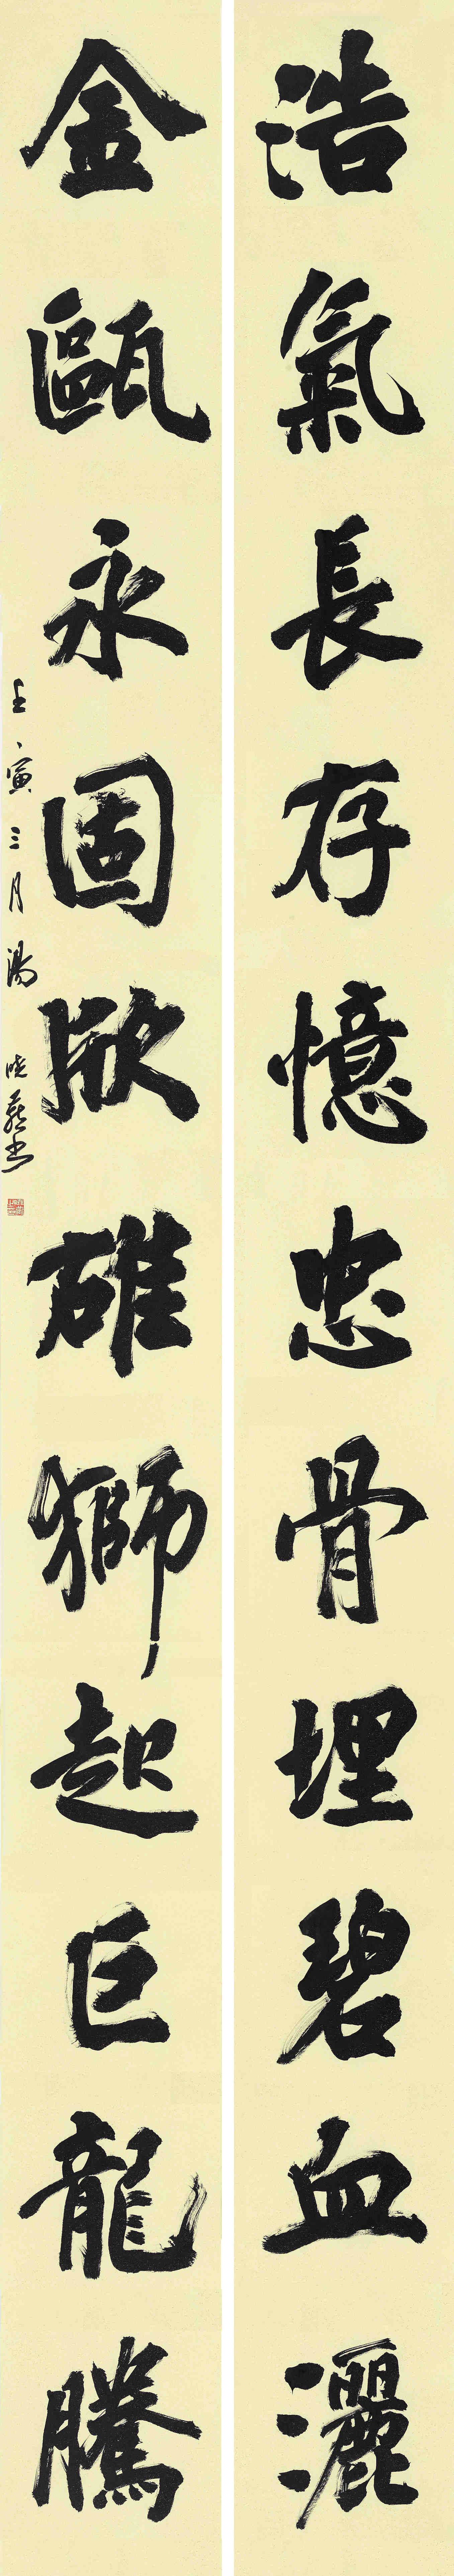 浩氣長存憶忠骨埋碧血灑
金甌永固欣雄獅起巨龍騰
壬寅三月湯曉燕書